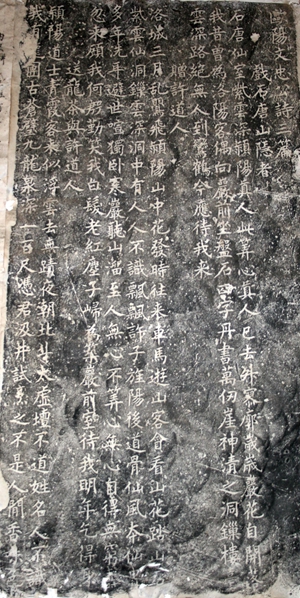 歐陽文忠公詩三篇
戲石唐山隱者
石唐仙室紫雲深潁陽真人此算心真人已去昇寥廓歲歲巖花自開
我昔曾為洛陽客偶向巖前坐盤石四字丹書萬仞崖神清之洞鏁樓
雲深路絕無人到鸞鶴今應待我來
贈許道人
洛城三月亂鶯飛潁陽山中花發時往來車馬遊山客貪看山花踏山
紫雲仙洞鏁雲深洞中有人人不識飄飄許子旌陽後道骨仙風本仙
多年洗耳避世喧獨卧寒巖聽山溜至人無心不算心無心自得無窮
忽來顧我何慇懃笑我白髮老紅塵子歸為築巖前室待我明年乞得
送龍茶與許道人
潁陽道士青霞客來似浮雲去無蹟夜朝北斗太虛壇不道姓名人不
我有龍團古蒼璧九龍泉深一百尺憑君汲井試烹之不是人間香